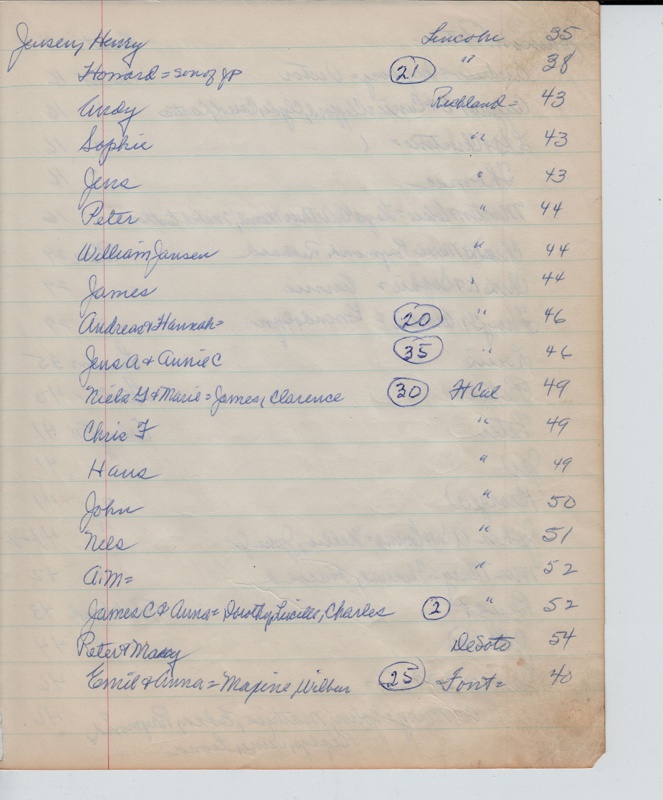 Jensen, Henry Lincoln 35
Howard = son of JP (21) " 38
Andy Richland = 43
Sophie " 43
Jens " 43
Peter " 44
William Jansen " 44
James " 44
Andreas & Hannah = (20) " 46
Jens A & Annie C (35) " 46
Niels G & Marie = James, Clarence (30) Ft Cal 49
Chris F " 49
Hans " 49
John " 50
Nels " 51
A.M = " 52
James C & Anna = Dorothy, Lucille, Charles (2) " 52
Peter & Mary DeSoto 54
Emil & Anna = Maxine, Wilbur (25) Font = 40